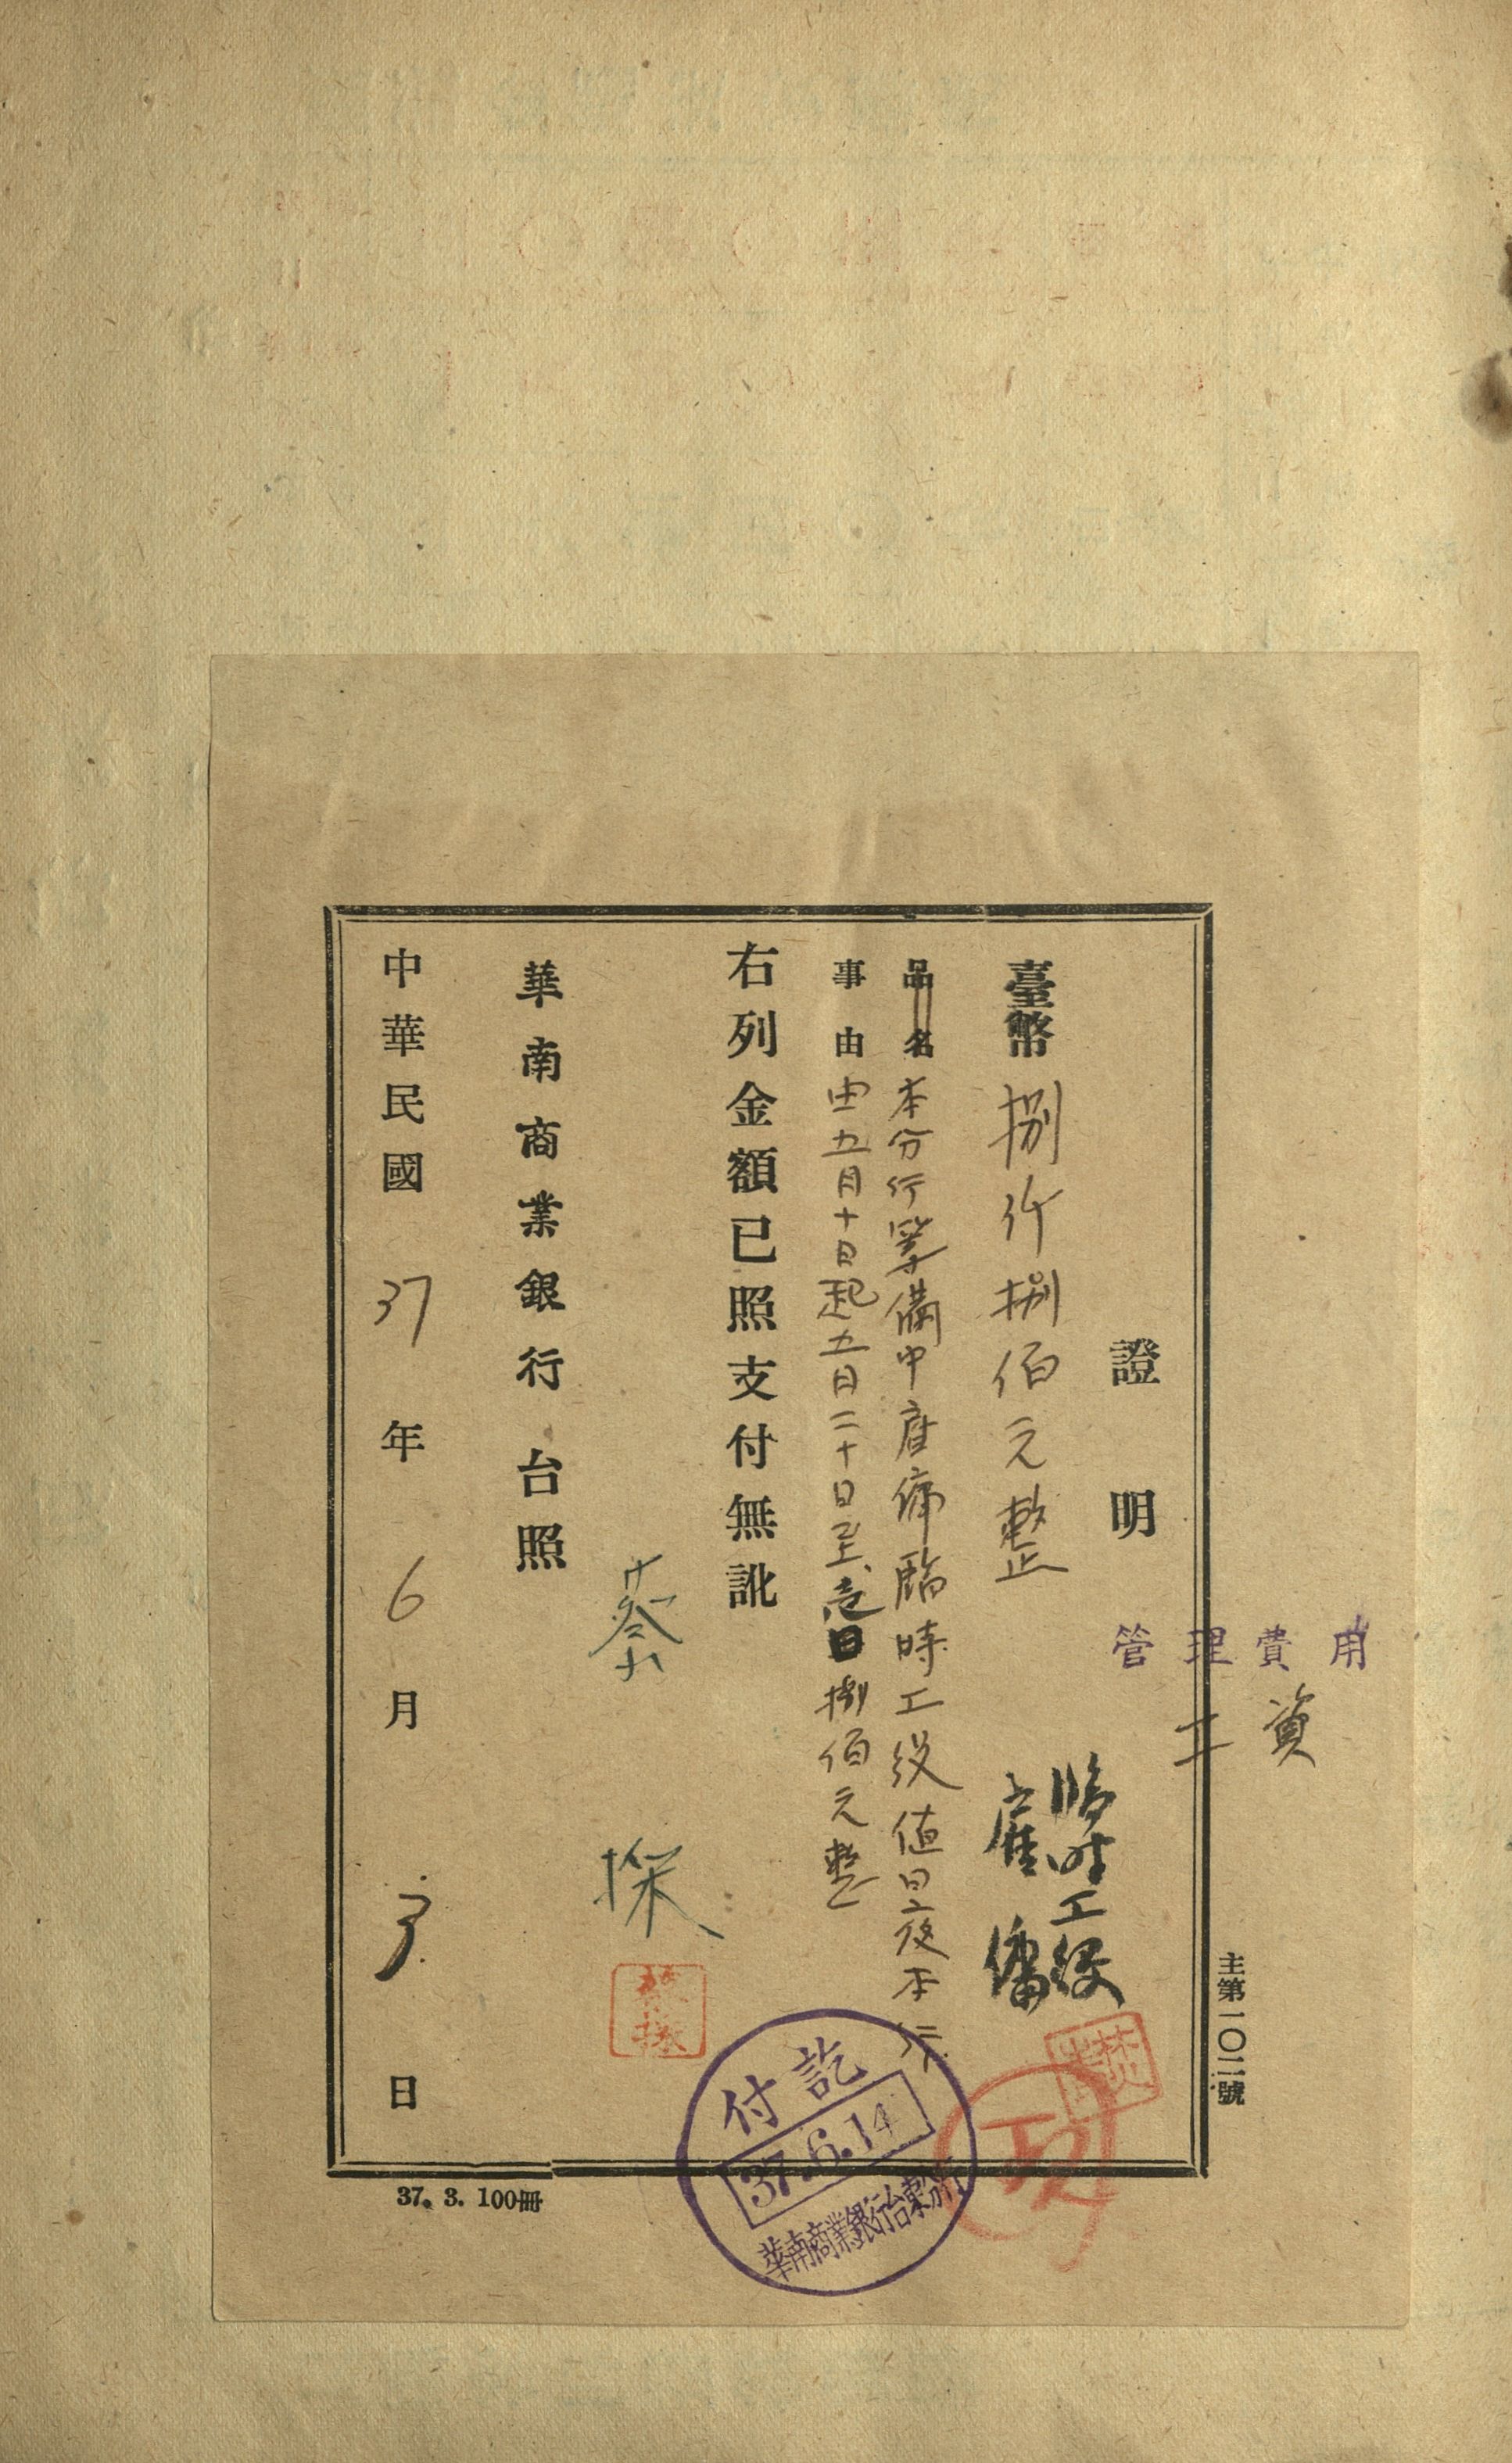 管理費用
工資
主第一〇二號
證明
臨時工役
雇傭
臺幣捌仟捌佰元整
品名本分行籌備中雇傭臨時工役值日夜本行
事由由五月十日起五月二十日至壱日捌佰元整
右列金額已照支付無訛
蔡探
蔡探
華南商業銀行台照
中華民國37年6月3日
付訖
37.6.14
華南商業銀行台東分行
37. 3. 100冊